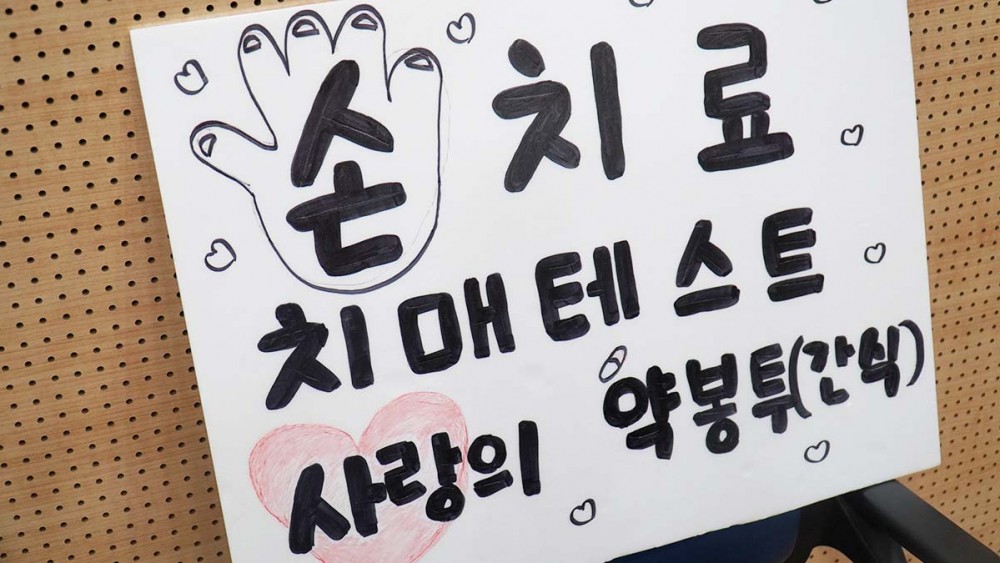 손치료
치매테스트
사랑의 약봉투(간식)